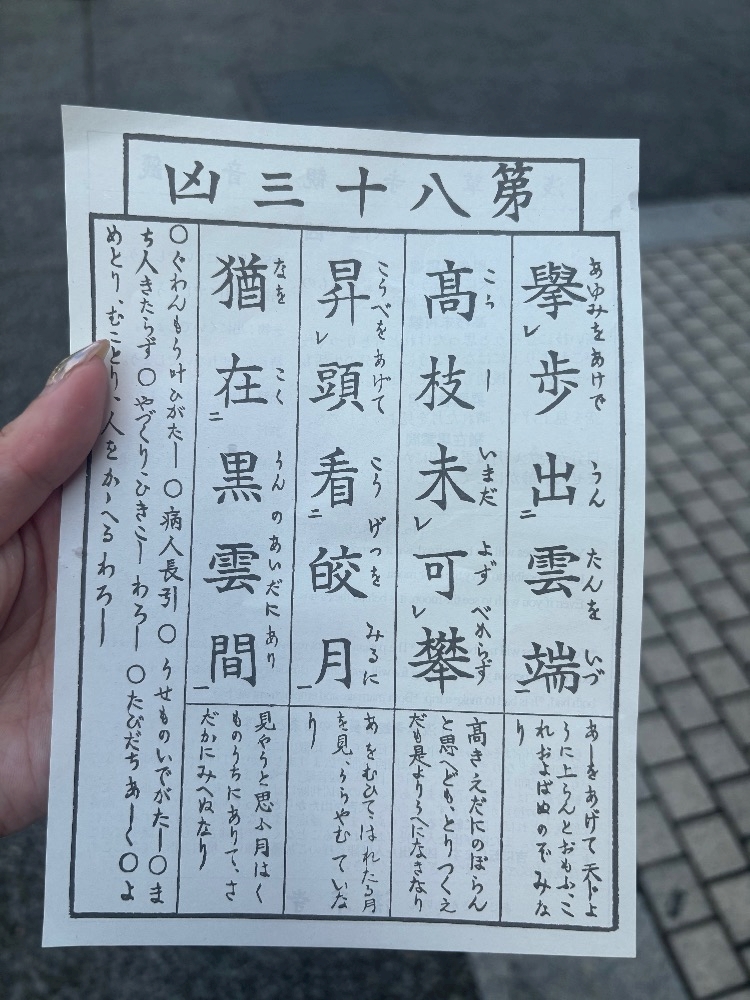 第八十三凶
擧歩出雲端
あゆみをあけで うん たんを いづ
あしをあげて天じよ
うに上らんとおもふ、こ
れおよばぬのぞみな
り
髙枝未可攀
こう し いまだ よず べからず
高きえだにのぼらん
と思へども、とりつくえ
だも是よりうへになきなり
昇頭看皎月
こうべをあげて こう げつを みるに
あをむひて、はれたる月
を見、うらやむていな
り
猶在黒雲間
なを こく うんのあいだにあり
見やうと思ふ月はく
ものうちにありて、さ
だかにみへぬなり
〇ぐわんもう叶ひがたし〇病人長引〇うせものいでがたし〇ま
ち人きたらず〇やづくり、ひきこしわろし〇たびだちあしく〇よ
めとり、むことり、人をかゝへるわろし